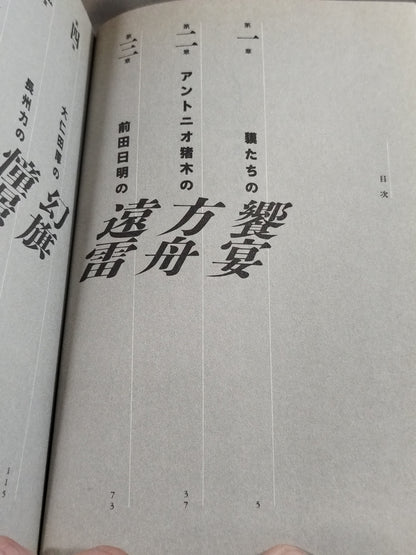 目次
第一章
貘たちの饗宴
5
第二章
アントニオ猪木の方舟
37
第三章
前田日明の遠雷
73
四
大仁田厚の幻旗
長州力の憧
115